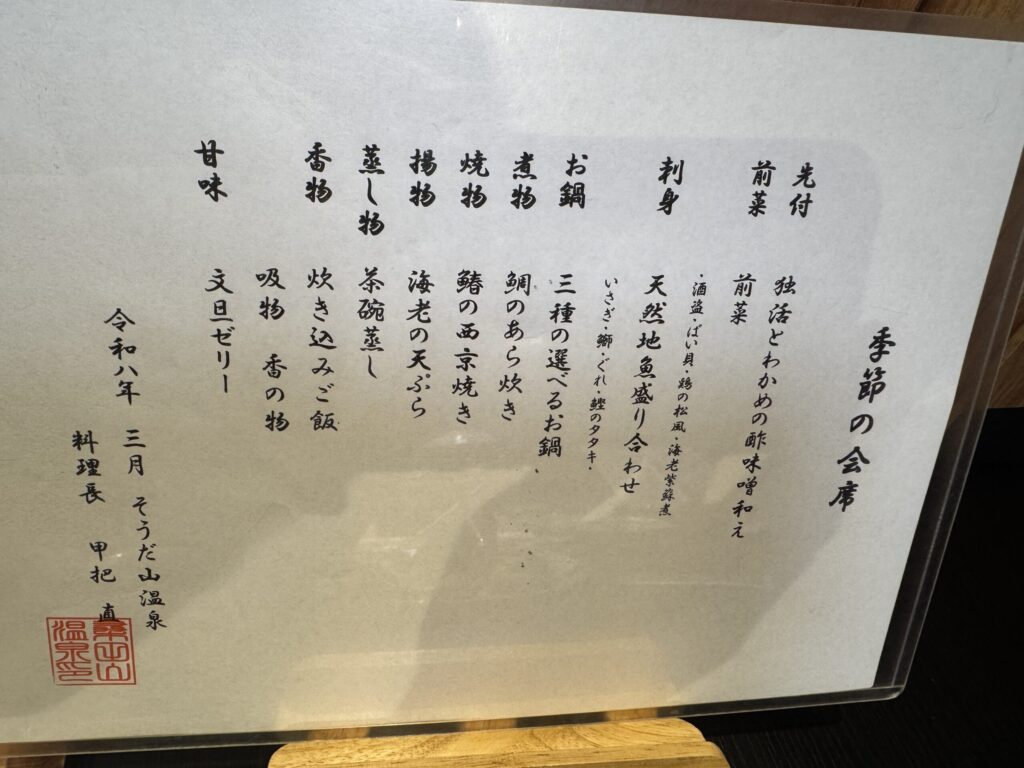 季節の会席
先付 独活とわかめの酢味噌和え
前菜 前菜
・酒盗・ばい貝・鶏の松風・海老紫蘇煮
刺身 天然地魚盛り合わせ
いさぎ・鰤・ぐれ 鰹のタタキ・
お鍋 三種の選べるお鍋
煮物 鯛のあら炊き
焼物 鰆の西京焼き
揚物 海老の天ぷら
蒸し物 茶碗蒸し
香物 炊き込みご飯
吸物 香の物
甘味 文旦ゼリー
令和八年 三月 そうだ山温泉
料理長 甲把 直
桑田山
温泉印